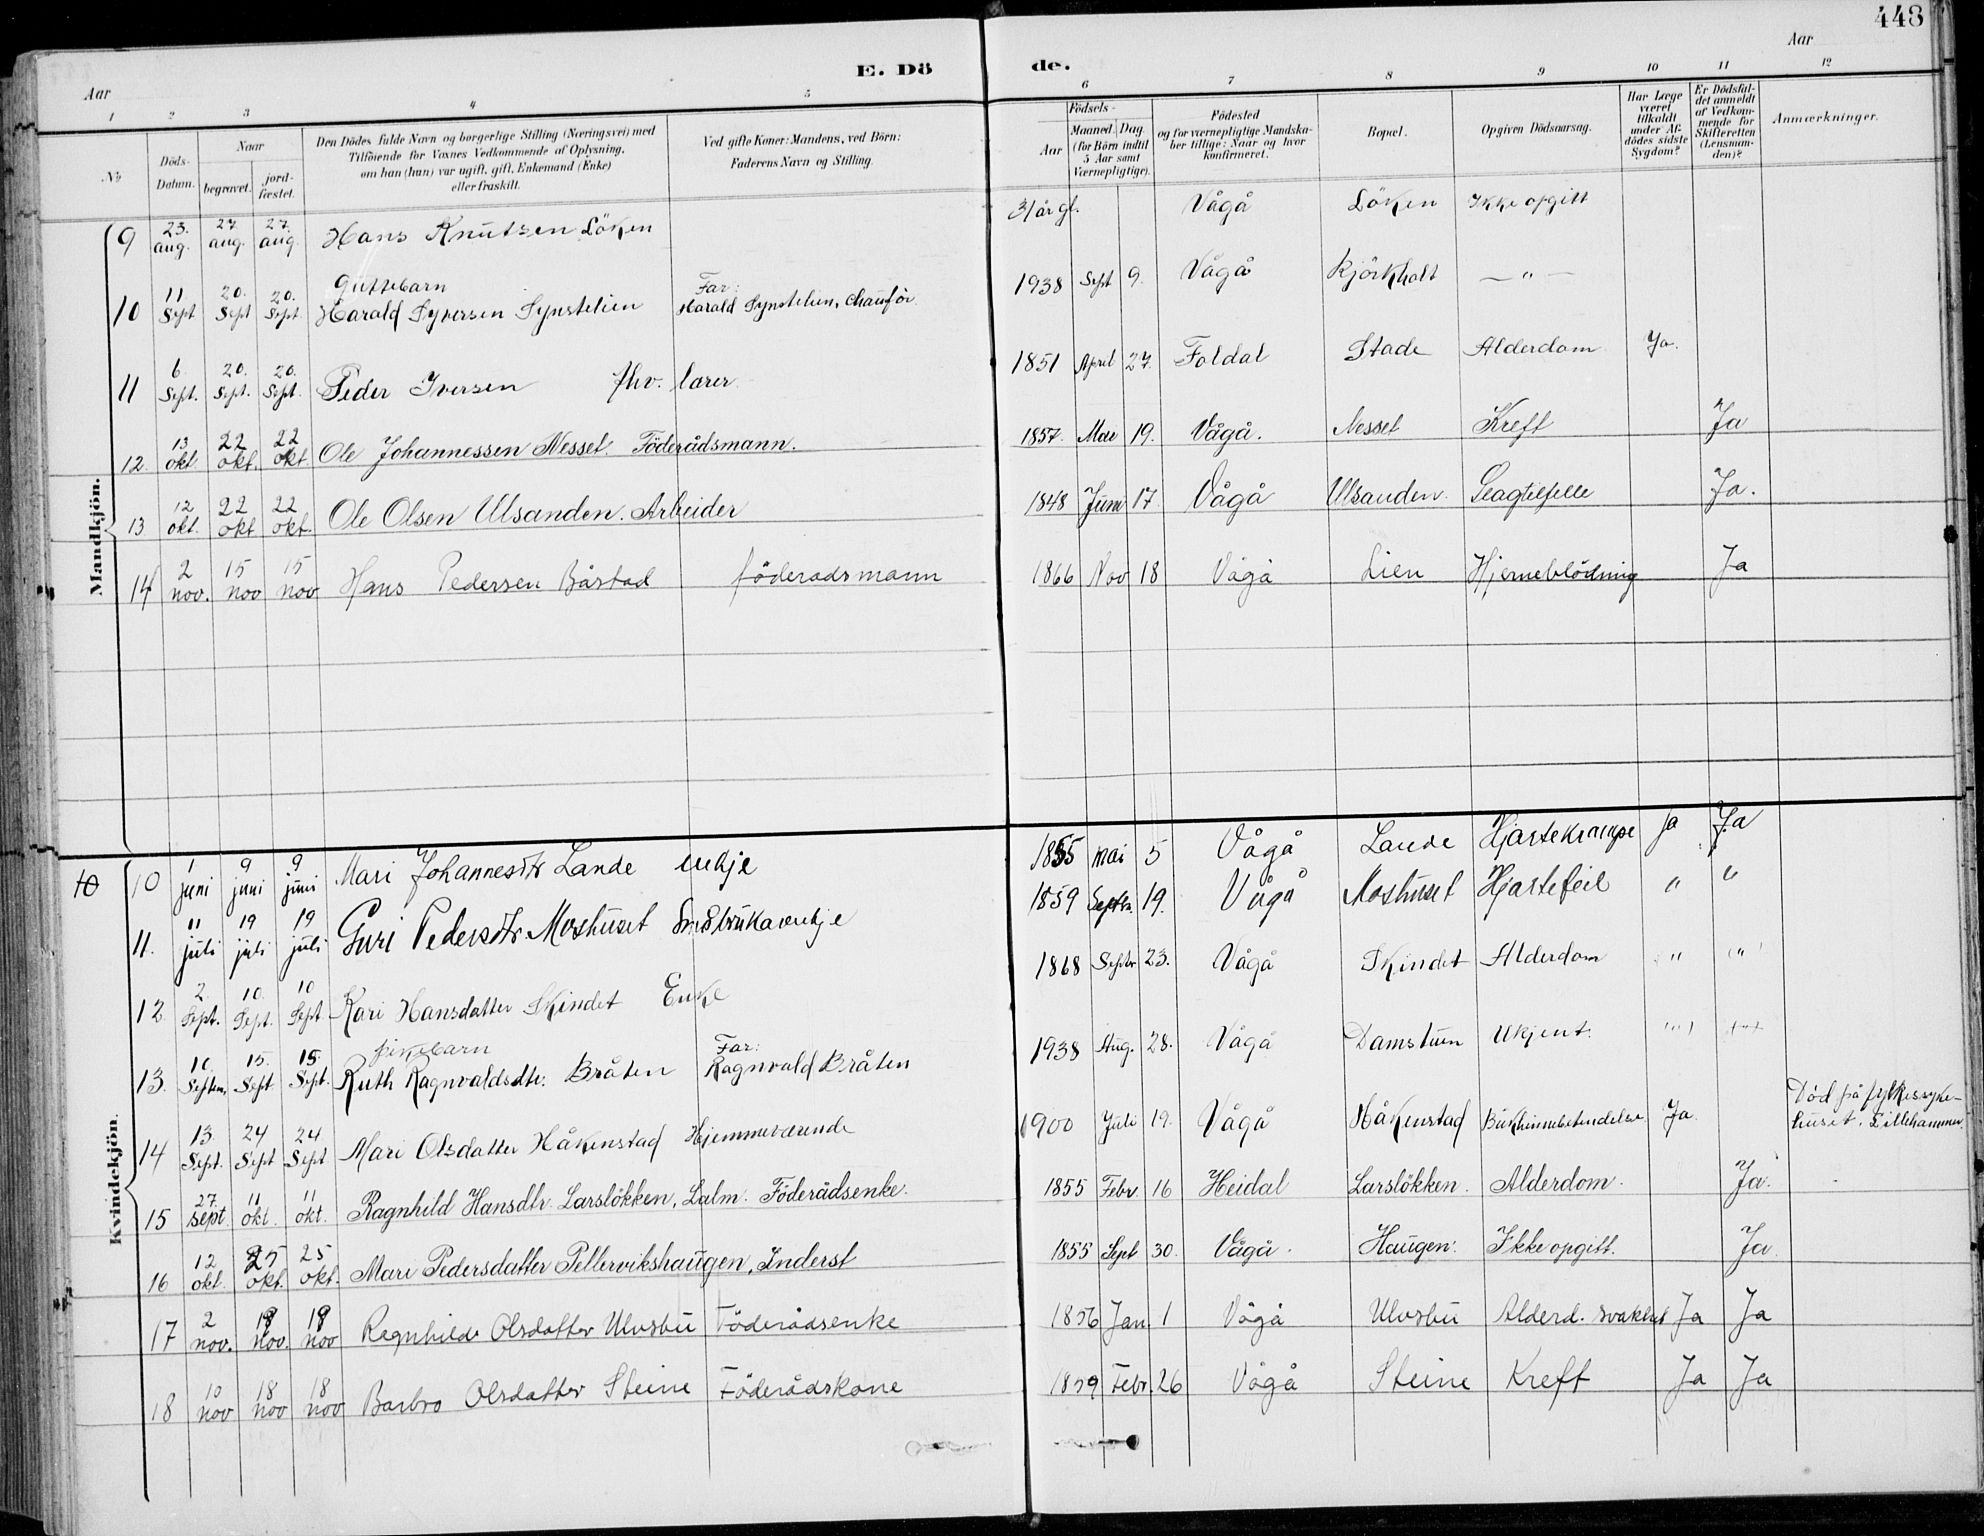 448
Aar
E. Dö
de.
Aar
1 2 3 4 5 6 7 8 9 10 11 12
No
Döds-Datum.
Naar
begravet.
jord-fæstet.
Den Dödes fulde Navn og borgerlige Stilling (Næringsvei) med
Tilföiende for Voxnes Vedkommende af Oplysning,
om han (hun) var ugift, gift, Enkemand (Enke)
eller fraskilt.
Ved gifte Koner: Mandens, ved Börn:
Faderens Navn og Stilling.
Födsels-
Aar
Maaned. Dag.
(for Börn indtil
5 Aar samt
Værnepligtige).
Födested
og for værnepligtige Mandska-
ber tillige: Naar og hvor
konfirmeret.
Bopæl.
Opgiven Dödsaarsag.
Har Læge
været
tilkaldt
under Af-
dödes sidste
Sygdom?
Er Dödsfal-
det anmeldt
af Vedkom-
mende for
Skifteretten
(Lensman-
den)?
Anmærkninger.
Mandkjön.
9 23. aug. 27. aug. 27. aug. Hans Knutsen Löken 31 år gl. Vågå Löken Ikke opgitt
Guttebarn Far:
10 11 Sept 20. Sept 20. Sept. Harald Syversen Synstelien Harald Synstelien, Chauför 1938 Sept 9. Vågå Bjørkholt — " —
11 6. Sept. 20. Sept. 20. Sept. Peder Iversen fhv. lærer 1851 April 27. Foldal Stade Alderdom Ja.
12. 13 okt. 22 okt. 22 okt. Ole Johannessen Nesset. Föderådsmann. 1857. Mai 19. Vågå. Nesset Kreft Ja
13 12 okt. 22 okt 22 okt. Ole Olsen Ulsanden. Arbeider 1848 Juni 17. Vågå Ulsanden. Slagtilfelle Ja.
14 2 nov. 15 nov 15 nov Hans Pedersen Båstad föderadsmann 1866 Nov 18 Vågå Lien Hjerneblödning Ja
Kvindekjön.
10 10 1 juni 9 juni 9 juni Mari Johannesdtr Lande enkje 1855 mai 5 Vågå Lande Hjartekrampe Ja Ja
11. 11 juli 19 juli 19 juli Guri Pedersdtr. Moshuset Småbrukarenkje 1859 Septbr. 19. Vågå Moshuset Hjartefeil " "
12 2. Sept. 10. Sept. 10 Sept Kari Hansdatter Skindet Enke 1868 Septbr 23. Vågå Skindet Alderdom " "
pikebarn Far:
13. 10. Septem. 15. Sept 15. Sept. Ruth Ragnvaldsdtr. Bråten Ragnvald Bråten 1938 Aug. 28. Vågå Damstuen Ukjent. " "
14 13 Sept. 24 Sept 24 Sept Mari Olsdatter Håkenstad Hjemmeværende 1900 Juli 19. Vågå Håkenstad Bukhinnebetendelse Ja. Död på fylkessyke-
huset, Lillehammer.
15 27. Sept 11 okt. 11 okt. Ragnhild Hansdtr. Larslökken, Lalm. Föderådsenke. 1855 Febr 16 Heidal Larslökken. Alderdom. Ja.
16 12 okt. 25 okt. 25 okt. Mari Pedersdatter Pellervikshaugen, Inderst 1855 Sept 30. Vågå. Haugen. Ikke opgitt. Ja.
17 2 nov. 19 nov. 19 nov Ragnhilde Olsdatter Ulvsbu Föderådsenke 1856 Jan 1 Vågå Ulvsbu Alderd. svakhet Ja Ja
18 10 nov 18 nov 18 nov Barbro Olsdatter Steine Föderådskone 1859 Febr. 26 Vågå Steine Kreft Ja Ja